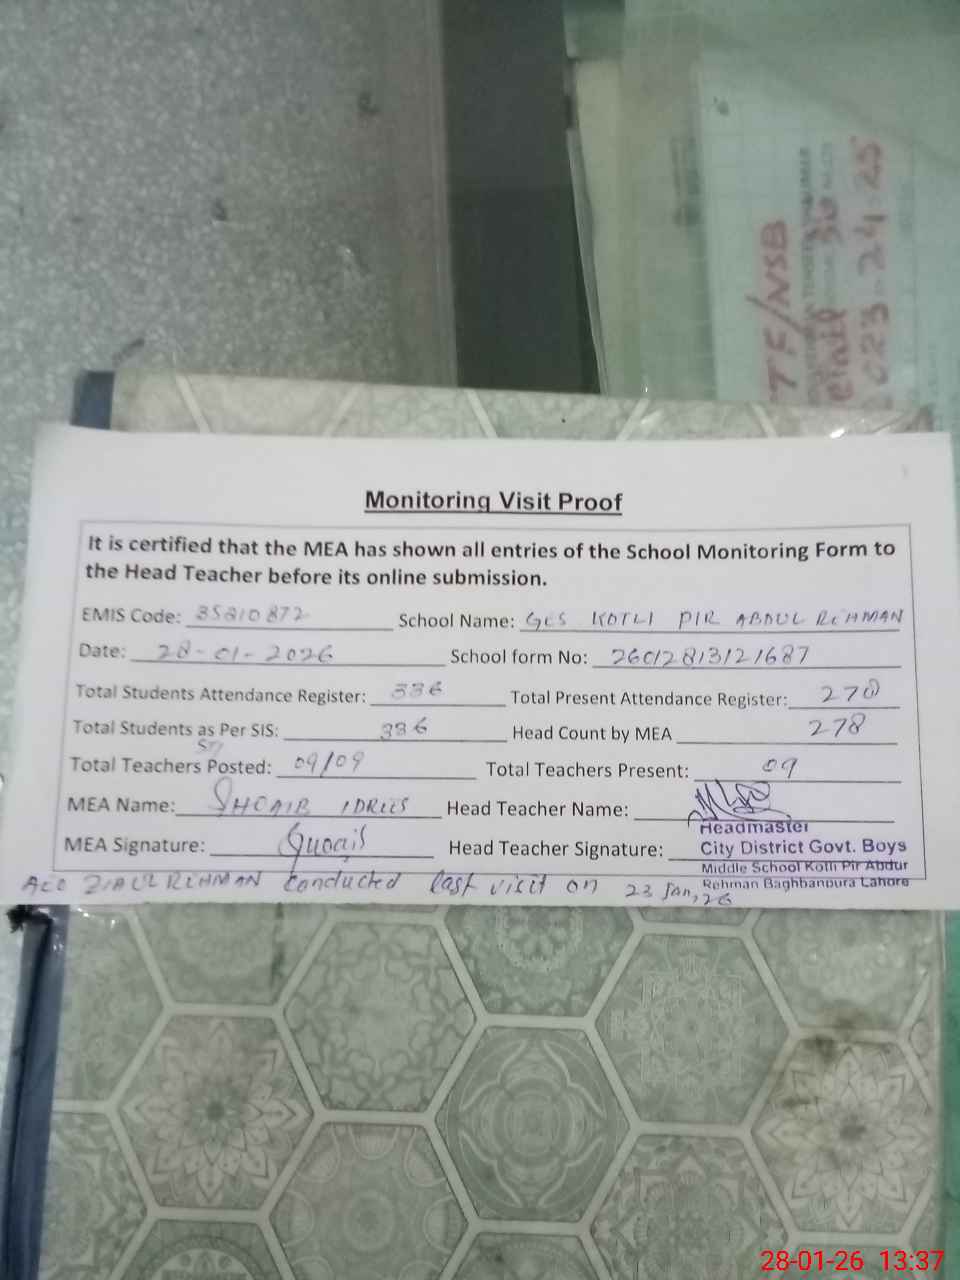 TF/NSB
023-24-25
Monitoring Visit Proof
It is certified that the MEA has shown all entries of the School Monitoring Form to
the Head Teacher before its online submission.
EMIS Code: 35210872 School Name: GES KOTLI PIR ABDUL REHMAN
Date: 28-01-2026 School form No: 26012813121687
Total Students Attendance Register: 336 Total Present Attendance Register: 278
Total Students as Per SIS: 336 Head Count by MEA 278
Total Teachers Posted: 09/09 Total Teachers Present: 09
MEA Name: SHOAIB IDREES Head Teacher Name:
MEA Signature: Head Teacher Signature:
Headmaster
City District Govt. Boys
Middle School Kotli Pir Abdur
Rehman Baghbanpura Lahore
AEO ZIAUL REHMAN Conducted last visit on 23 Jan, 26
28-01-26 13:37